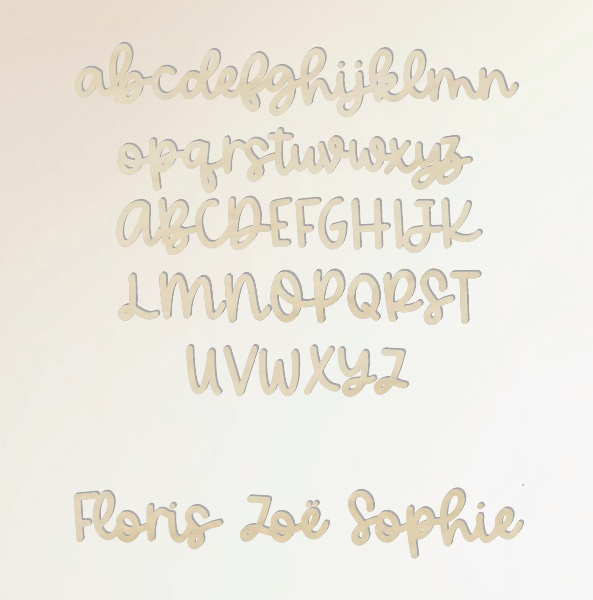 abcdefghijklmn
opqrstuvwxyz
ABCDEFGHIJK
LMNOPQRST
UVWXYZ
Floris Zoë Sophie